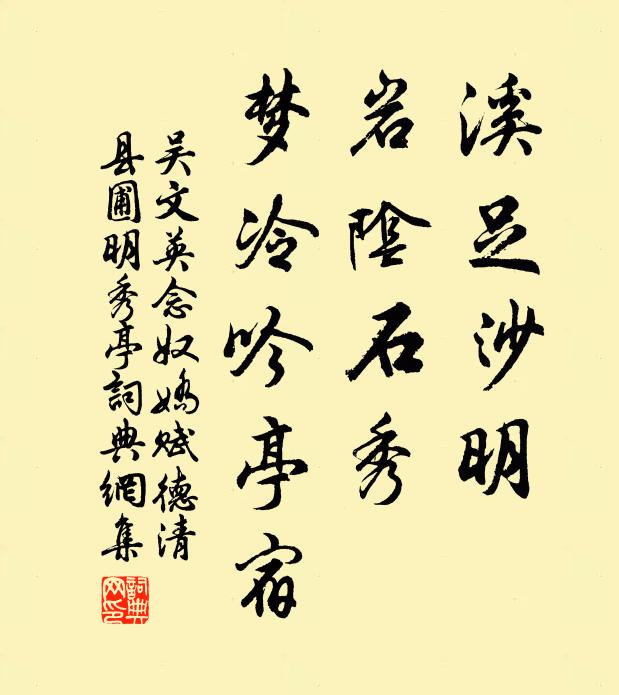 溪足沙明
岩陰石秀
梦冷吟亭宿
吴文英念奴嬌赋德清
县圃明秀亭詞典網集
詞典
网印